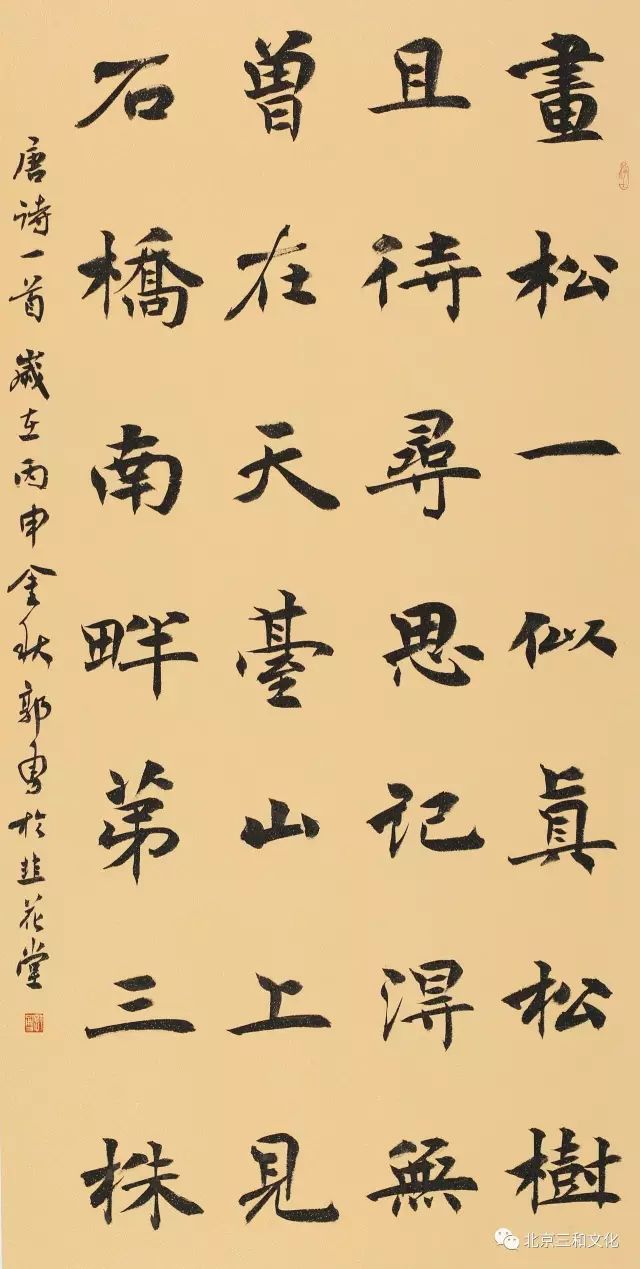 畫松一似真松樹
且待尋思記得無
曾在天臺山上見
石橋南畔第三株
唐诗一首 歲在丙申金秋郭勇於韭花堂
北京三和文化